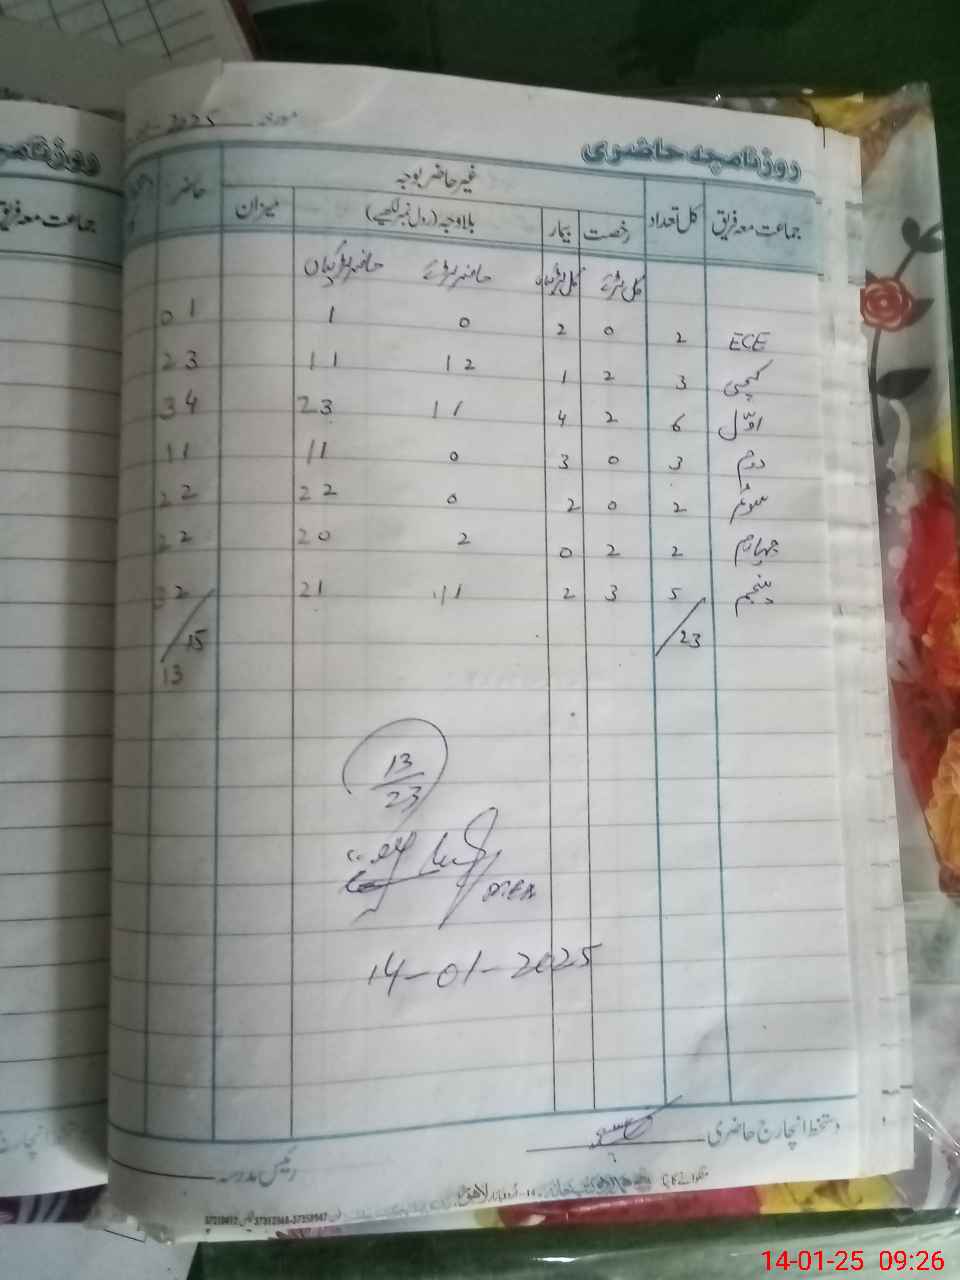 مورخہ 2025
روزنامچہ حاضری
روزنامچہ
جماعت معہ فریق
کل تعداد
غیر حاضر بوجہ
حاضر
رخصت
بیمار
بلاوجہ (رول نمبر لکھیے)
میزان
جماعت معہ فریق
کل لڑکے کل لڑکیاں حاضر لڑکے حاضر لڑکیاں
ECE 2 0 2 0 1 01
کچی 3 2 1 12 11 23
اوّل 6 2 4 11 23 34
دوم 3 0 3 0 11 11
سوئم 2 0 2 0 22 22
چہارم 2 2 0 2 20 22
پنجم 5 3 2 11 21 32
/23 /15
13
13
23
14-01-2025
دستخط انچارج حاضری
رئیس مدرسہ
14-01-25 09:26